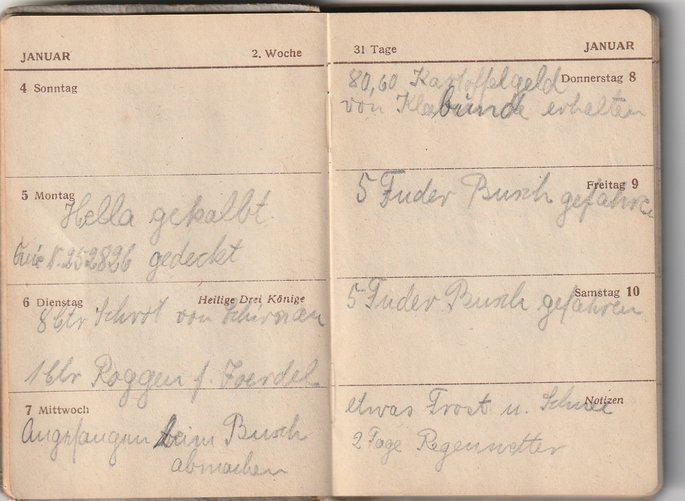 JANUAR 2. Woche
4 Sonntag
5 Montag
Hella gekalbt
N. 252826 gedeckt
6 Dienstag Heilige Drei Könige
8 Ctr Schrot von
1 Ctr Roggen f.
7 Mittwoch
Angefangen beim Busch
abmachen
31 Tage JANUAR
Donnerstag 8
80,60 Kartoffelgeld
von Klabunde erhalten
Freitag 9
5 Fuder Busch gefahren
Samstag 10
5 Fuder Busch gefahren
Notizen
etwas Frost u. Schnee
2 Tage Regenwetter